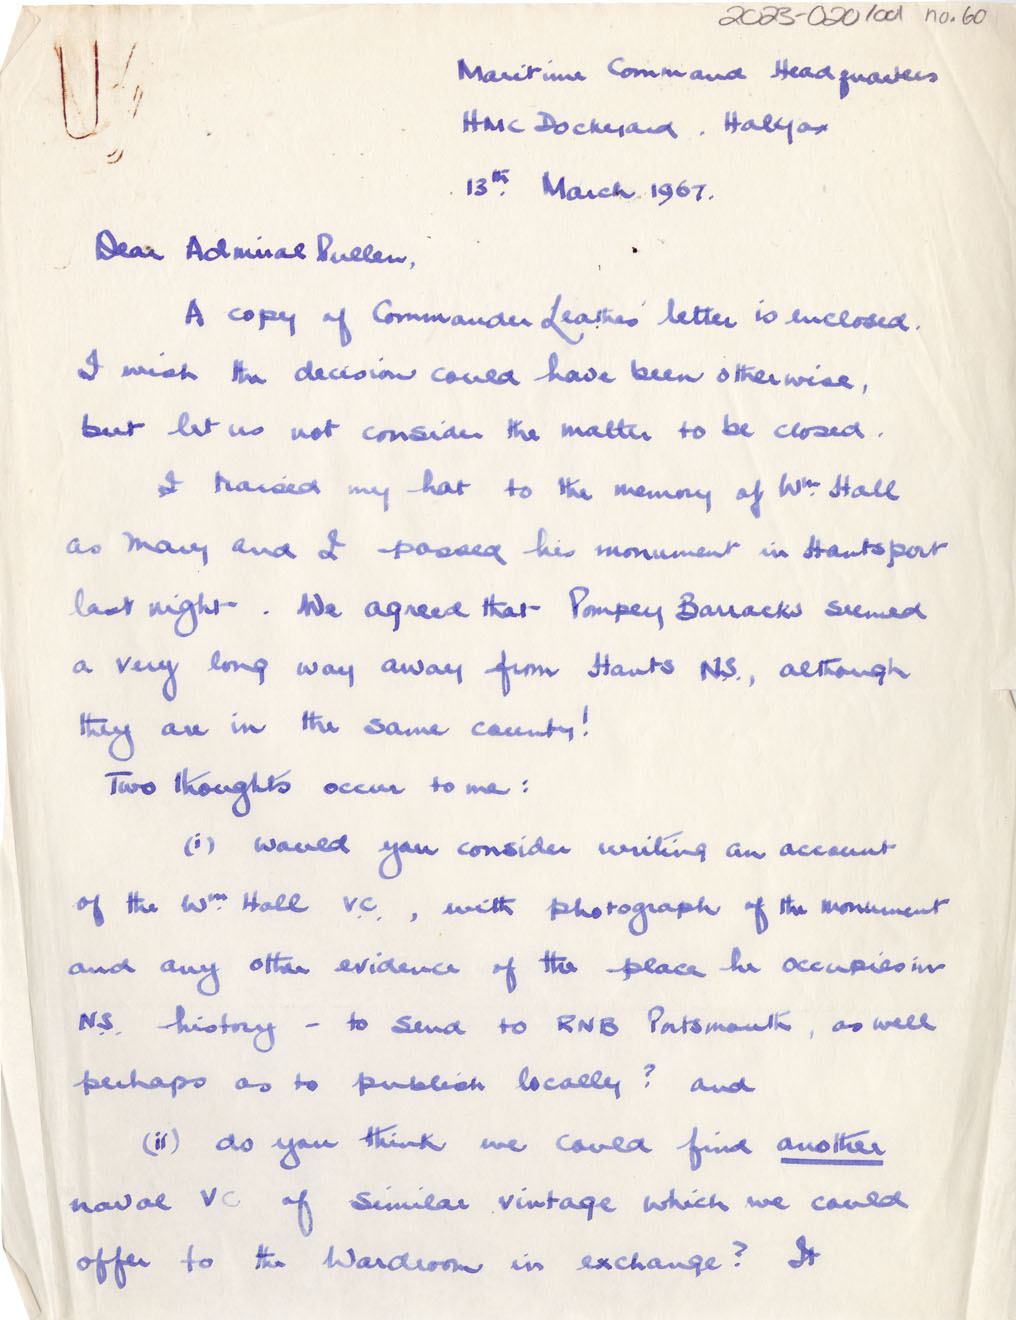 2023-020/001 no.60
Maritime Command Headquarters
HMC Dockyard. Halifax
13th March 1967.
Dear Admiral Pullen,
A copy of Commander Leathes' letter is enclosed.
I wish the decision could have been otherwise,
but let us not consider the matter to be closed.
I raised my hat to the memory of Wm. Hall
as Mary and I passed his monument in Hantsport
last night. We agreed that Pompey Barracks seemed
a very long way away from Hants N.S., although
they are in the same county!
Two thoughts occur to me:
(i) would you consider writing an account
of the Wm. Hall V.C., with photograph of the monument
and any other evidence of the place he occupies in
N.S. history - to send to RNB Portsmouth, as well
perhaps as to publish locally? and
(ii) do you think we could find another
naval VC of similar vintage which we could
offer to the Wardroom in exchange? It